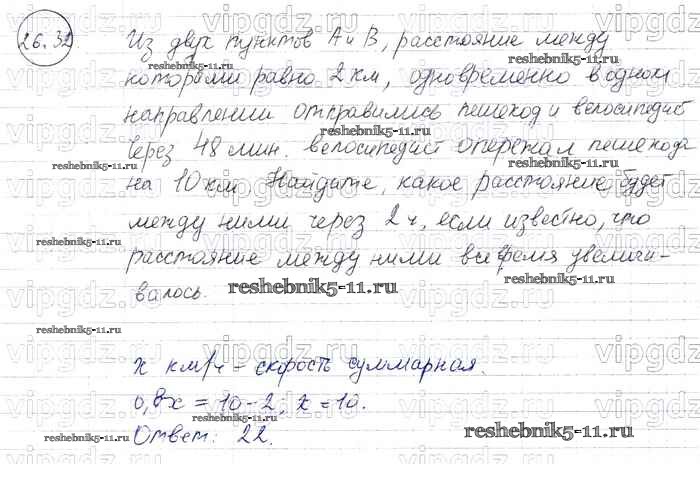 26.32
Из двух пунктов А и В, расстояние между
которыми равно 2 км, одновременно в одном
направлении отправились пешеход и велосипедист
Через 48 мин. велосипедист опережал пешехода
на 10 км. Найдите, какое расстояние будет
между ними через 2 ч, если известно, что
расстояние между ними все время увеличи-
валось.
x км/ч – скорость суммарная.
0,8x = 10-2; x = 10.
Ответ: 22.
vipgdz.ru
reshebnik5-11.ru